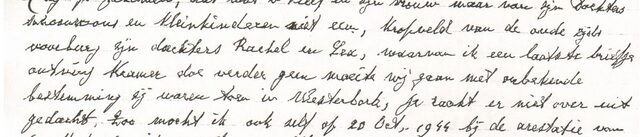 en zijn vrouw maar van zijn dochters
schoonzoons en kleinkinderen niet een, Kropveld van de oude zijds
voorburg zijn dochters Rachel en Lea, waarvan ik een laatste briefje
ontving Kramer doe verder geen moeite wij gaan met onbekende
bestemming zij waren toen in Westerbork, je raakt er niet over uit
gedacht. Zoo mocht ik ook zelf op 20 Oct. 1944 bij de arestatie van